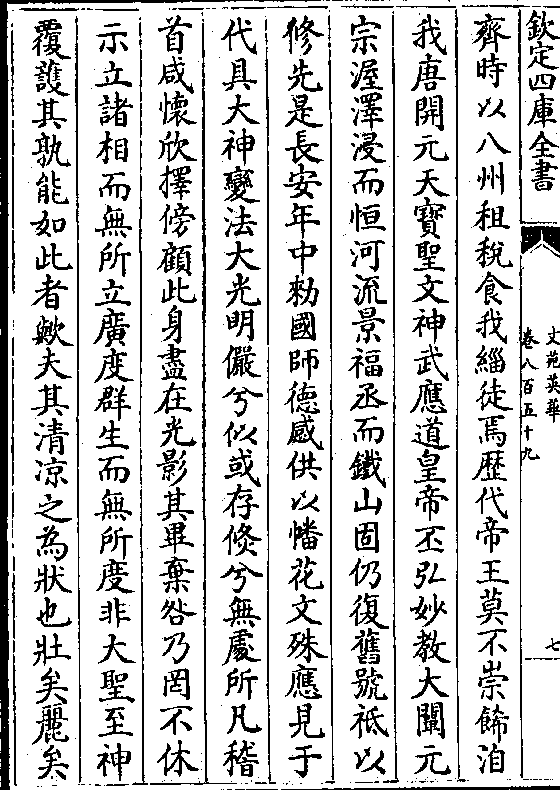 欽定四庫全書
文苑英華
卷八百五十九
七
齊時以八州租稅食我緇徒焉歷代帝王莫不崇餙洎
我唐開元天寶聖文神武應道皇帝丕弘妙教大闡元
宗渥澤浸而恒河流景福丞而鐵山固仍復舊號祗以
修先是長安年中勑國師德感供以幡花文殊應見于
代具大神變法大光明儼兮似或存倏兮無處所凡稽
首咸懷欣擇傍顧此身盡在光影其畢棄咎乃罔不休
示立諸相而無所立廣度群生而無所度非大聖至神
覆護其孰能如此者歟夫其清凉之為狀也壯矣麗矣